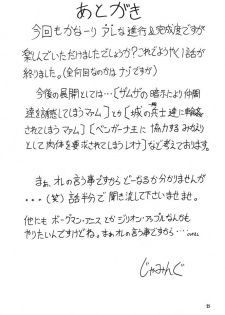 あとがき
今回もかなーり ラフな進行&完成度ですが
楽しんでいただけましたでしょうか?これでようやく1話が
終りました。(全何回なのかはナゾですが)
今後の展開としては…[ザムザの暗示により仲間
達を誘惑してしまうマァム]と[城の兵士達に輪姦
されてしまうマァム][ベンガーナ王に協力するみかえり
として肉体を要求されてしまうレオナ]など考えております。
まぁ、オレの言う事ですからどーなるか分かりませんが
・・・(笑)話半分で聞き流して下さいませ。
他にもボーグマン・アニス とか ジリオン・アップルなんかも
やりたいんですけどね。まぁオレの言う事ですから…
じゃみんぐ